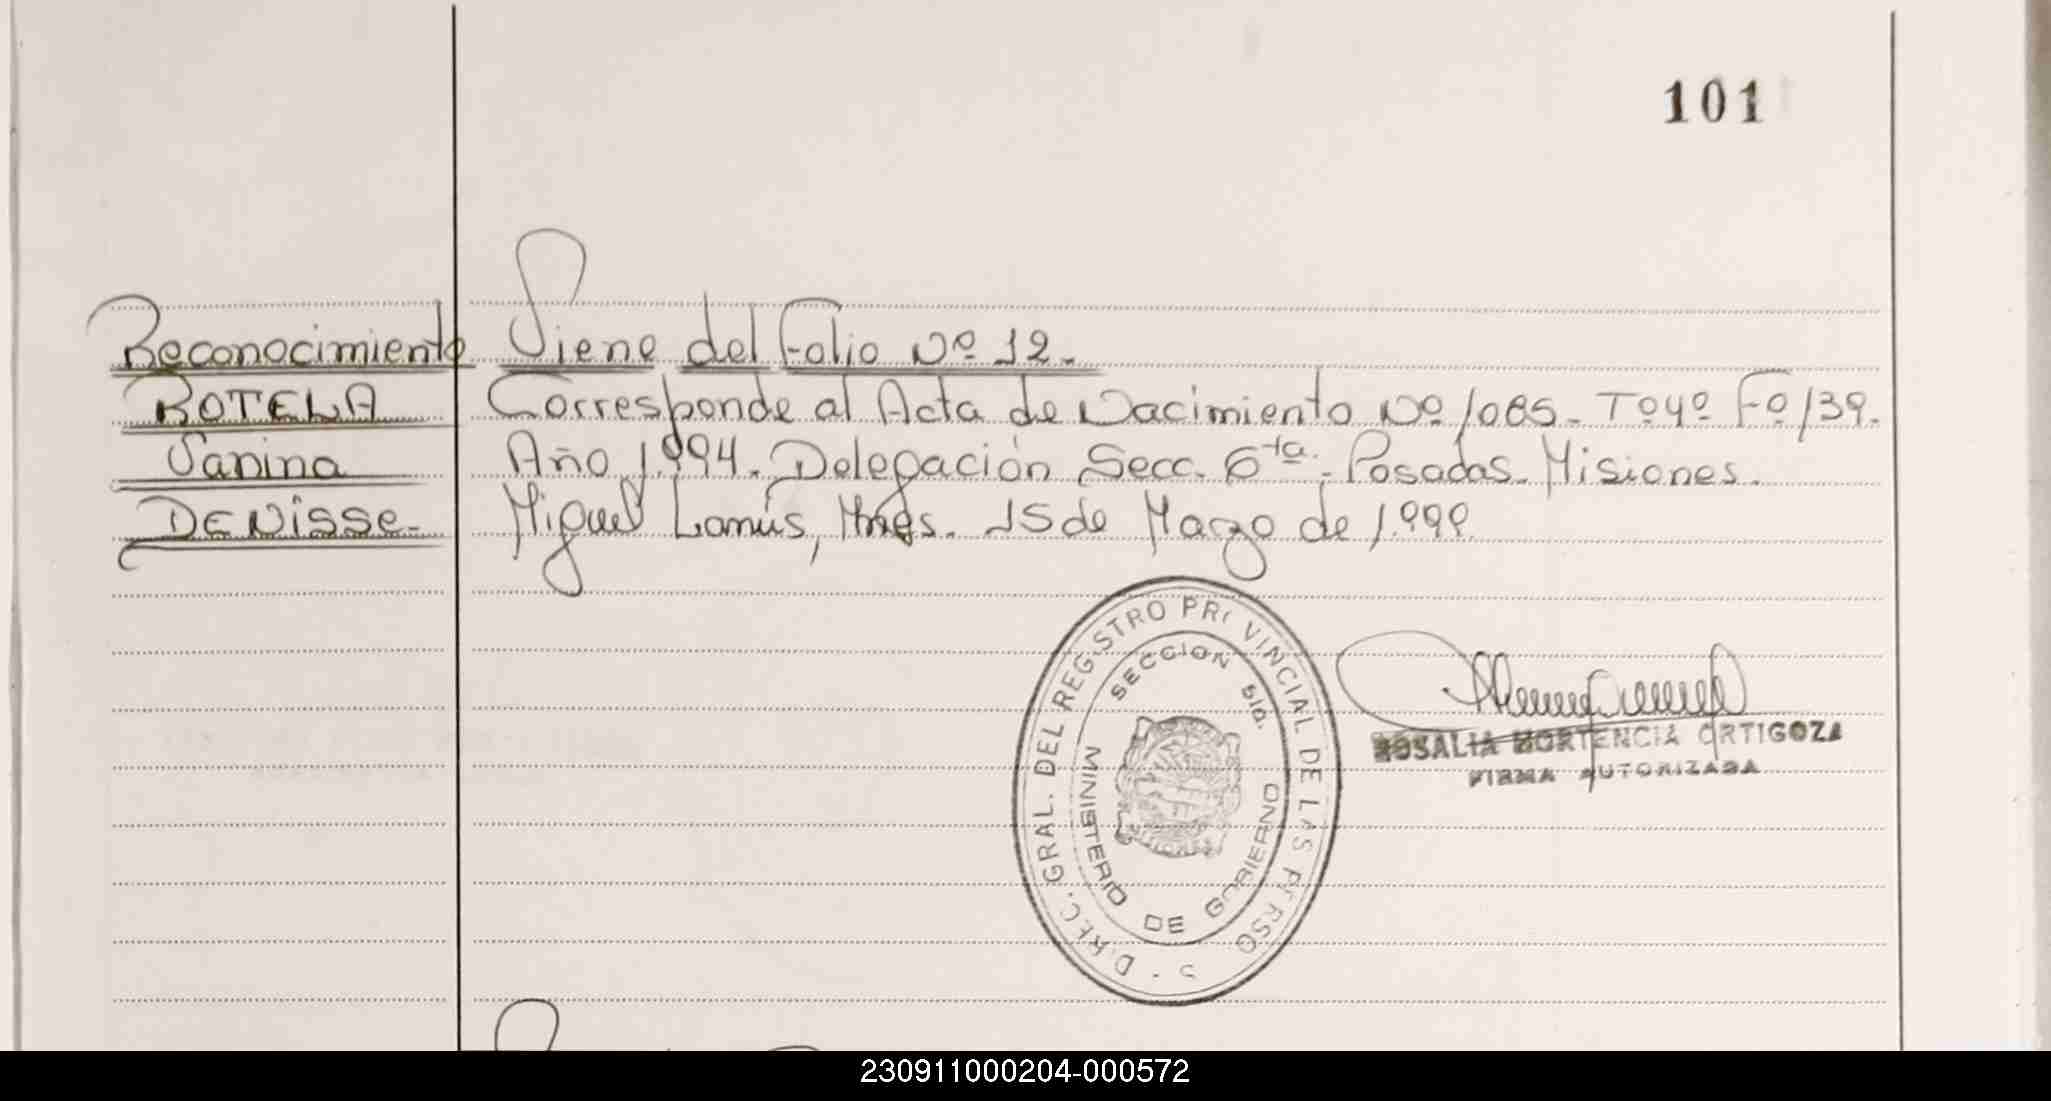 101
Reconocimiento Viene del Folio Nº 12.
BOTELA Corresponde al Acta de Nacimiento Nº 1085. Tº4º Fº 139.
Vanina Año 1.994. Delegación Secc. 6ta. Posadas. Misiones.
DENisse. Miguel Lanús, Mnes. 15 de Marzo de 1.999.
DIREC. GRAL. DEL REGISTRO PROVINCIAL DE LAS PERSO S.
SECCION 5ta.
MINISTERIO DE GOBIERNO
ROSALIA HORTENCIA ORTIGOZA
FIRMA AUTORIZADA
230911000204-000572